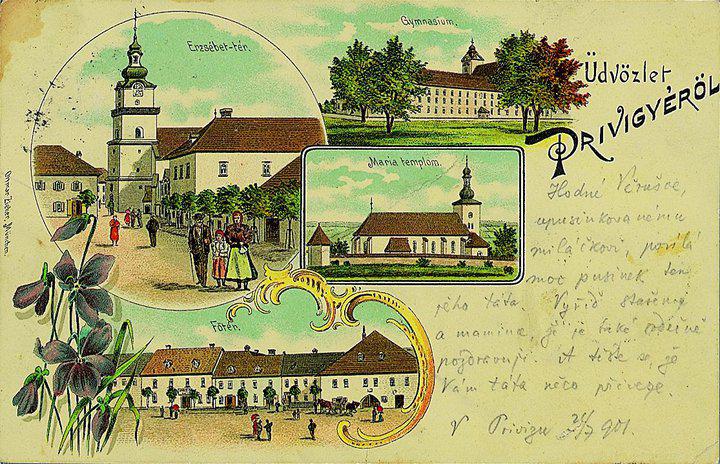 Erzsébet-tér.
Gymnasium.
Üdvözlet
PRIVIGYÉRŐL
Maria templom.
Főtér.
Ottmar Zieher, München.
Hodné Věrušce,
upusinkovanému
miláčkovi, posílá
moc pusinek ten
jeho táta. Vyřiď stařeny
a mamince, že je také srdečně
pozdravuji. A těšte se, že
Vám táta něco přiveze.
V Privizu 901.